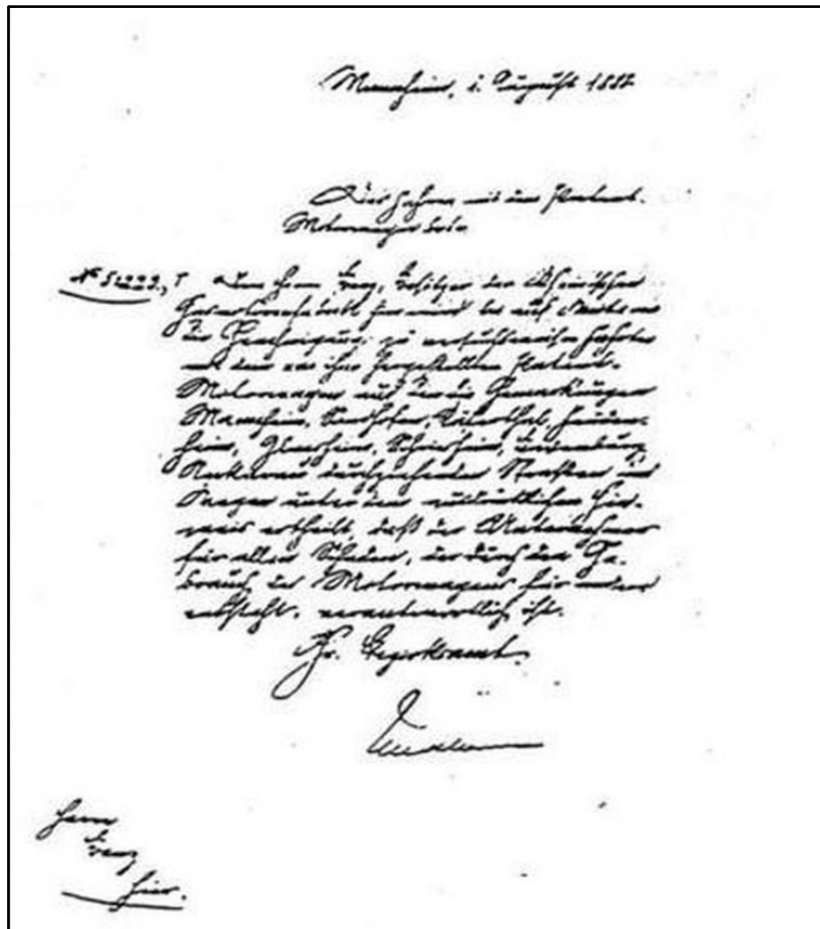 Mannheim, 1. August 1888
Das Fahren mit dem Patent-
Motorwagen betr.
Dem Herrn Benz, Besitzer der Rheinischen
Gasmotorenfabrik hier wird bis auf Weiteres
die Genehmigung zu versuchsweisen Fahrten
mit dem von ihm hergestellten Patent-
Motorwagen auf der die Gemarkungen
Mannheim, Sandhofen, Käferthal, Feuden-
heim, Ilvesheim, Schriesheim, Ladenburg,
Neckarau durchziehenden Straßen und
Wegen unter dem ausdrücklichen Hin-
weis ertheilt, daß der Unternehmer
für allen Schaden, der durch den Ge-
brauch des Motorwagens für andere
entsteht, verantwortlich ist.
Gr. Bezirksamt.
Herrn
Benz
hier.